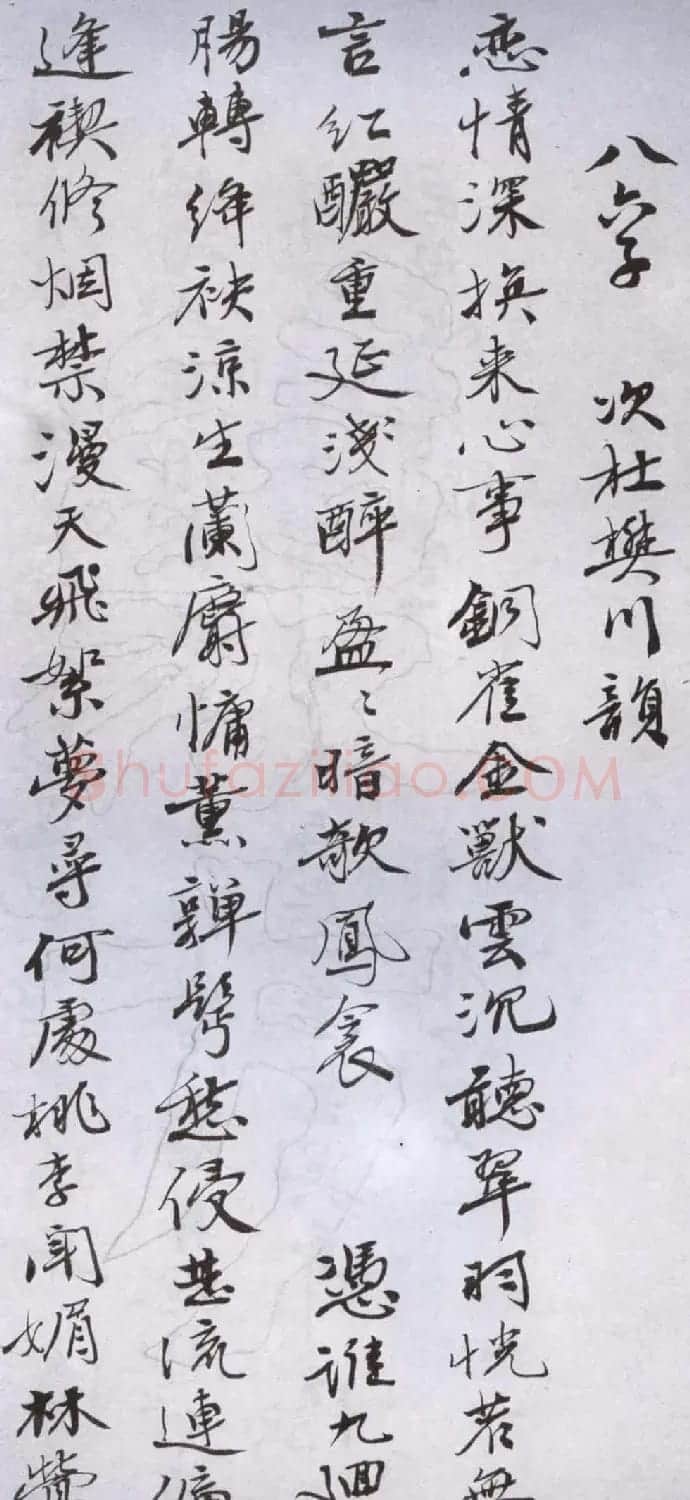 八六子 次杜樊川韻
恋情深換来心事銅雀金獸雲沉聽翠羽恍若無
言紅釅重延淺醉盈〻暗欹鳳衾 憑誰九迴
腸轉絳袂涼生蘭麝慵薰嚲髩愁侵甚流連偏
逢禊修烟禁漫天飛絮夢尋何處桃李閒媚林鶯
shufaziliao.COM